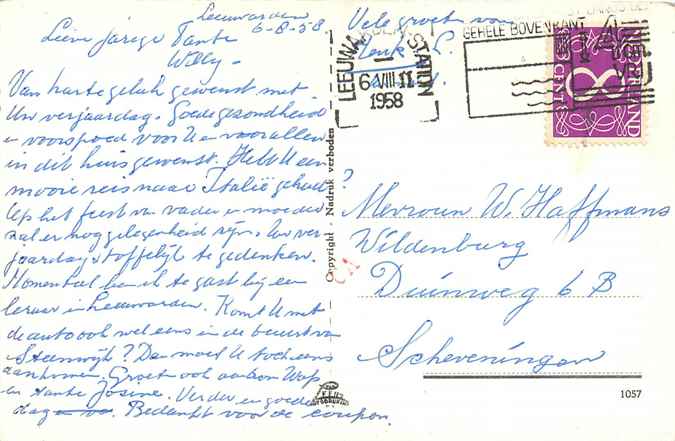 Leeuwarden
6-8-58
Lieve jarige Tante
Willy.
Van harte geluk gewenst met
Uw verjaardag. Goede gezondheid
en voorspoed voor U en voor allen
in dit huis gewenst. Hebt U een
mooie reis naar Italië gehad?
Op het feest van vader en moeder
zal er nog gelegenheid zijn Uw ver-
jaardag stoffelijk te gedenken.
Momenteel ben ik te gast bij een
leraar in Leeuwarden. Komt U met
de auto ook wel eens in de buurt van
Steenwijk? Dan moet U toch eens
aankomen. Groet ook oom
en tante Josine. Verder een goede
dag Bedankt voor de coupon.
Vele groeten van
Henk
LEEUWARDEN-STATION
6 VIII 11
1958
GEHELE BOVENKANT
8
CENT
NEDERLAND
Copyright - Nadruk verboden
Mevrouw W. Haffmans
Wildenburg
Duinweg 6 B
Scheveningen
1057